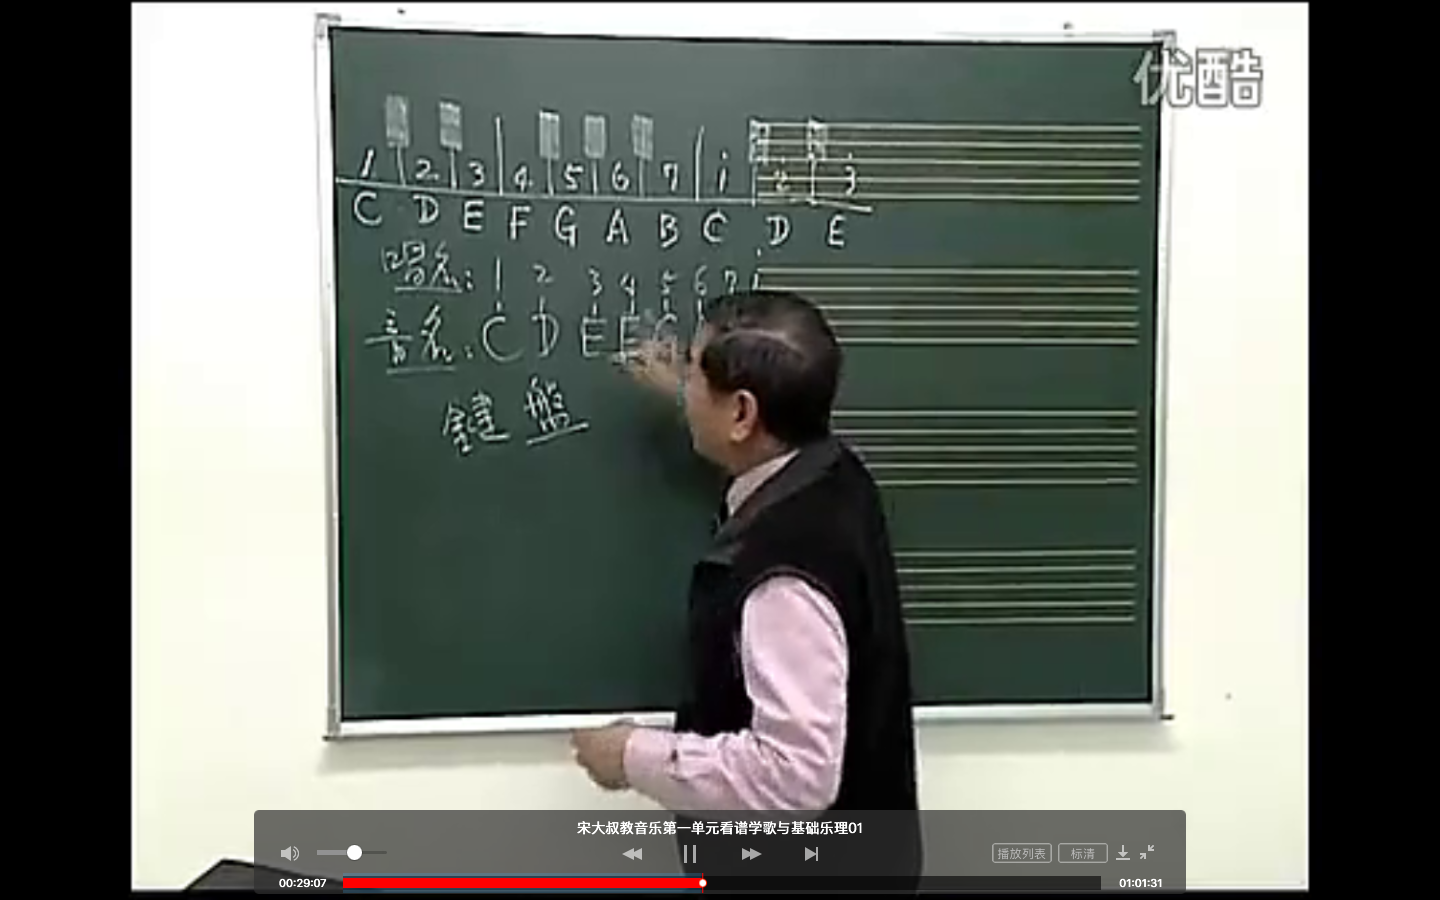 优酷
1 2 3 4 5 6 7 i 2 3
C D E F G A B C D E
唱名: 1 2 3 4 5 6 7 i
音名: C D E F G
鍵盤
宋大叔教音乐第一单元看谱学歌与基础乐理01
播放列表 标清
00:29:07 01:01:31